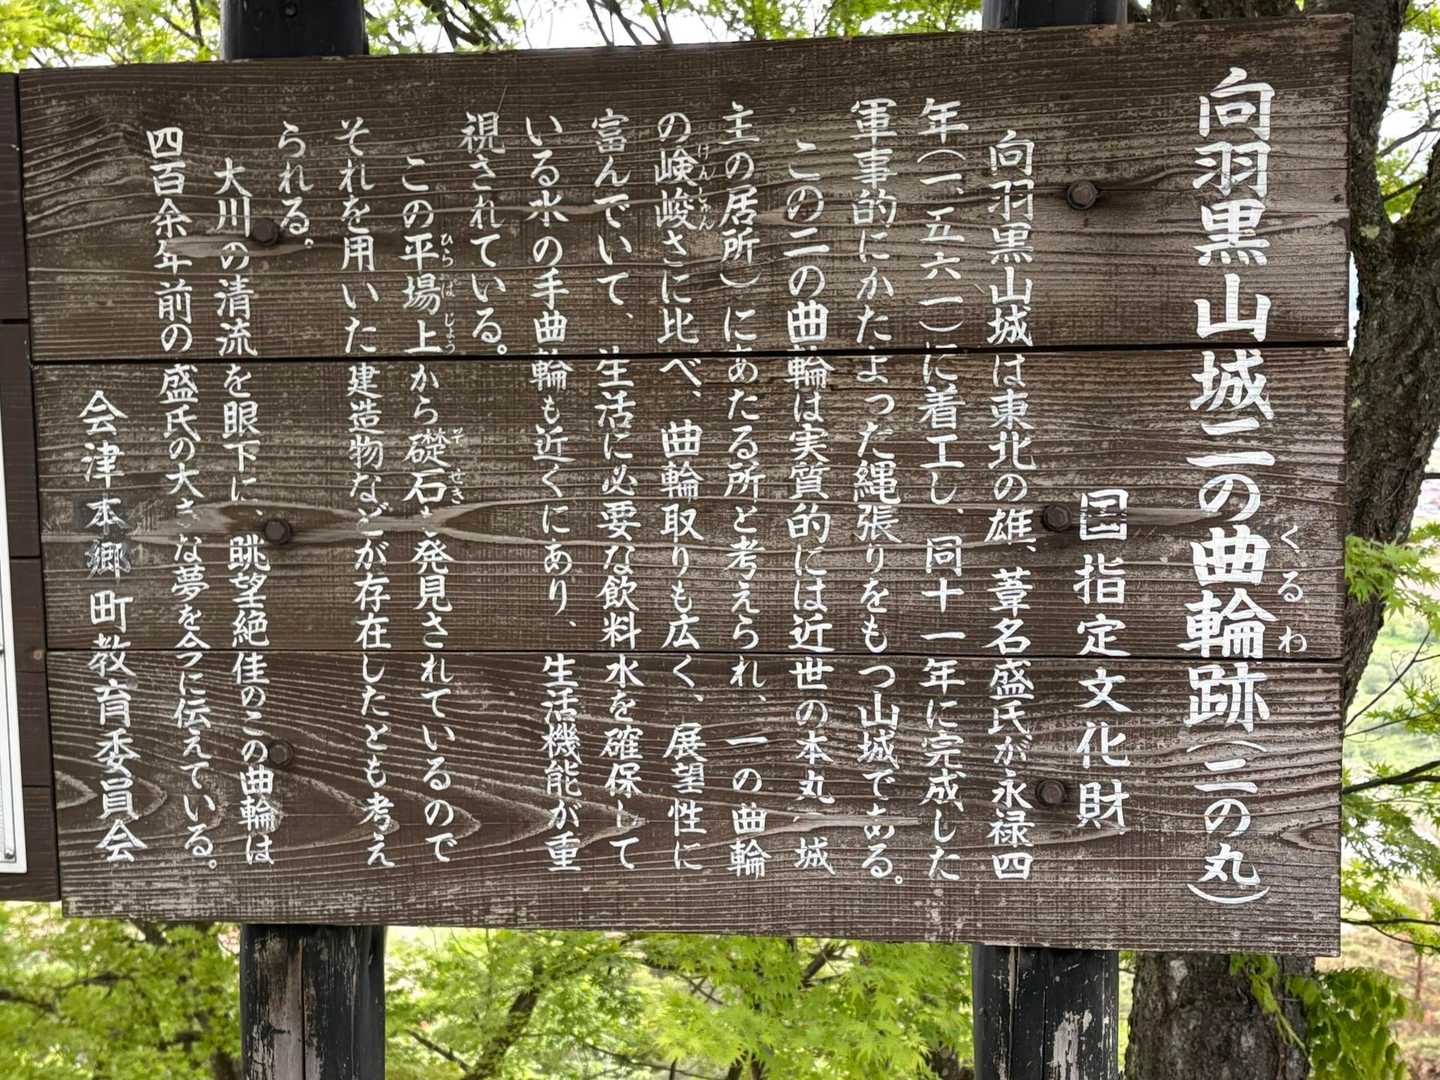 向羽黒山城二の曲輪跡(二の丸)
くるわ
国指定文化財
向羽黒山城は東北の雄、葦名盛氏が永禄四
年(一、五六一)に着工し、同十一年に完成した
軍事的にかたよった縄張りをもつ山城である。
この二の曲輪は実質的には近世の本丸(城
主の居所)にあたる所と考えられ、一の曲輪
の険峻さに比べ、曲輪取りも広く、展望性に
けんしゅん
富んでいて、生活に必要な飲料水を確保して
いる水の手曲輪も近くにあり、生活機能が重
視されている。
この平場上から礎石も発見されているので
ひらばじょう
そせき
それを用いた建造物などが存在したとも考え
られる。
大川の清流を眼下に、眺望絶佳のこの曲輪は
四百余年前の盛氏の大きな夢を今に伝えている。
会津本郷町教育委員会